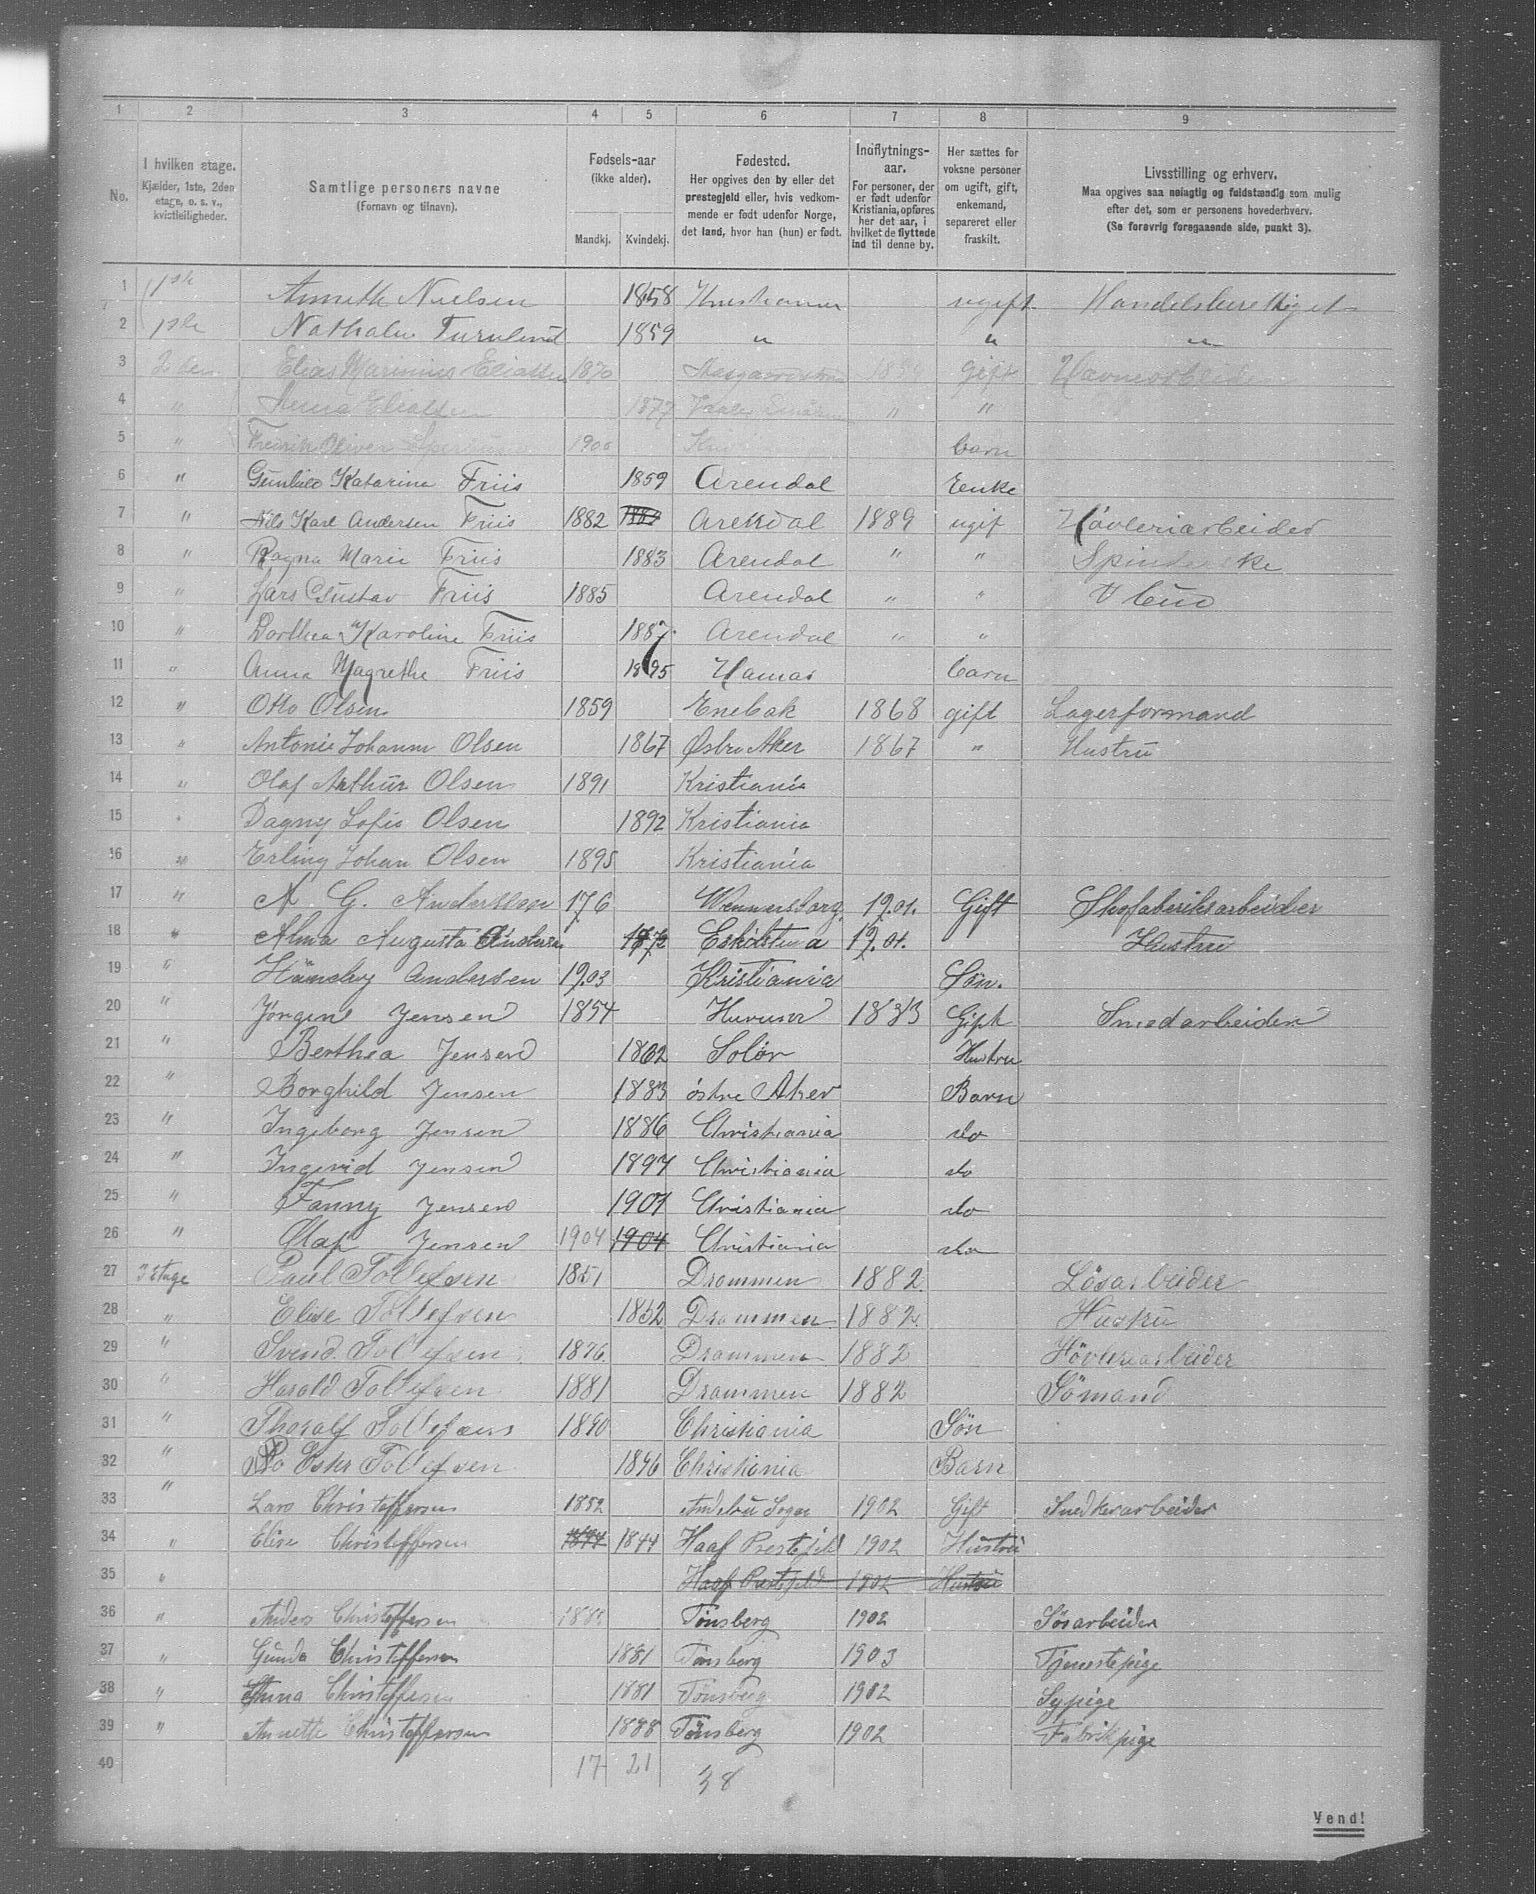 1 2 3 4 5 6 7 8 9
No. I hvilken etage. Kjælder, 1ste, 2den etage, o. s. v., kvistleiligheder. Samtlige personers navne (Fornavn og tilnavn). Fødsels-aar (ikke alder). Mandkj. Kvindekj. Fødested. Her opgives den by eller det prestegjeld eller, hvis vedkommende er født udenfor Norge, det land, hvor han (hun) er født. Indflytnings-aar. For personer, der er født udenfor Kristiania, opføres her det aar, i hvilket de flyttede ind til denne by. Her sættes for voksne personer om ugift, gift, enkemand, separeret eller fraskilt. Livsstilling og erhverv. Maa opgives saa nøiagtig og fuldstændig som mulig efter det, som er personens hovederhverv. (Se forøvrig foregaaende side, punkt 3).
1 1ste Annette Nielsen 1858 Kristiania ugift Handelsberettiget
2 1ste Nathalie 1859 " " "
3 2den Elias Marinius Eliassen 1870 gift Havnearbeider
4 " Anna Eliassen 1877 " "
5 " Fredrik Oliver 1900 barn
6 " Gunhild Katarina Friis 1859 Arendal Enke
7 " Nils Karl Andersen Friis 1882 Arendal 1889 ugif Høvleriarbeider
8 " Ragna Marie Friis 1883 Arendal " "
9 " Lars Gustav Friis 1885 Arendal " "
10 " Dorthea Karoline Friis 1887 Arendal " "
11 " Anna Magrethe Friis 1895 Hamar barn
12 " Otto Olsen 1859 Enebak 1868 gift Lagerformand
13 " Antonie Johanne Olsen 1867 Østre Aker 1867 " Hustru
14 " Olaf Arthur Olsen 1891 Kristiania
15 " Dagny Sofie Olsen 1892 Kristiania
16 " Erling Johan Olsen 1895 Kristiania
17 " A. G. Andersson 176 Wennersborg 19.01. Gift Skofabriksarbeider
18 " Alma Augusta Andersen 1872 Eskilstuna 19.01. Hustru
19 " Andersen 19.03 Kristiania Søn.
20 " Jørgen Jensen 1854 Hurum 1883 Gift Smedarbeider
21 " Berthea Jensen 1862 Solør Hustru
22 " Borghild Jensen 1883 østre Aker Barn
23 " Ingeborg Jensen 1886 Christiania do
24 " Ingerid Jensen 1897 Christiania do
25 " Fanny Jensen 1901 Christiania do
26 " Olaf Jensen 1904 1904 Christiania do
27 3 Etage Paul Tollefsen 1851 Drammen 1882. Løsarbeider
28 " Elise Tollefsen 1852 Drammen 1882. Hustru
29 " Svend Tollefsen 1876. Drammen 1882 Høvleriarbeider
30 " Harald Tollefsen 1881 Drammen 1882 Sømand
31 " Thoralf Tollefsen 1890 Christiania Søn
32 " Ester Tollefsen 1896 Christiania Barn
33 " Lars Christoffersen 1852 1902 Gift Snedkerarbeider
34 " Elise Christoffersen 1844 1844 Haaf Prestejeld 1902 Hustru
35 " Haaf Prestejeld 1902 Hustru
36 " Anders Christoffersen Tønsberg 1902 Løsarbeider
37 " Gunda Christoffersen 1881 Tønsberg 1903 Tjenestepige
38 " Anna Christoffersen 1881 Tønsberg 1902 Sypige
39 " Annette Christoffersen 1888 Tønsberg 1902 Fabrikpige
40 17 21 38
Vend!